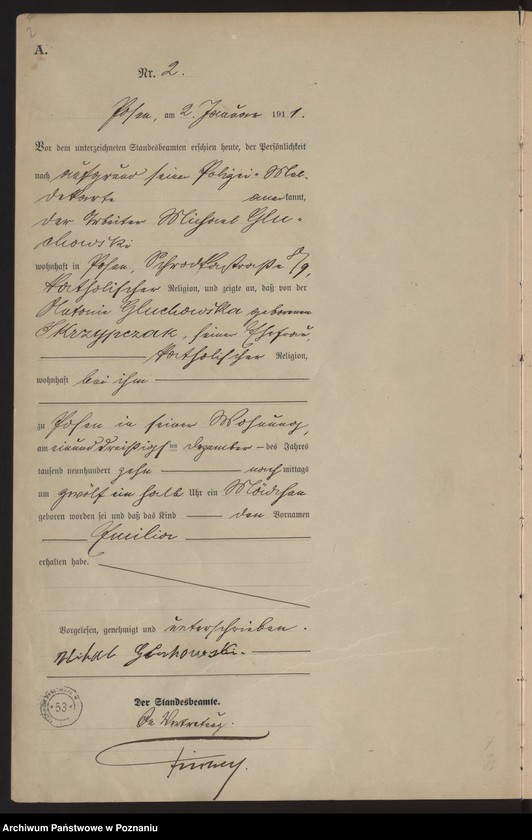 A.
Nr. 2.
Posen, am 2. Januar 1911.
Vor dem unterzeichneten Standesbeamten erschien heute, der Persönlichkeit
nach aufgrund seiner Polizei-Mel-
dekarte anerkannt,
der Arbeiter Michael Glu-
chowski
wohnhaft in Posen, Schrodkastraße 8/9,
katholischer Religion, und zeigte an, daß von der
Antonie Gluchowska geborenen
Skrzypczak, seiner Ehefrau,
katholischer Religion,
wohnhaft bei ihm
zu Posen in seiner Wohnung,
am einunddreißigsten Dezember des Jahres
tausend neunhundert zehn nachmittags
um zwölf ein halb Uhr ein Mädchen
geboren worden sei und daß das Kind den Vornamen
Emilia
erhalten habe.
Vorgelesen, genehmigt und unterschrieben.
Der Standesbeamte.
In Vertretung.
53
Archiwum Państwowe w Poznaniu